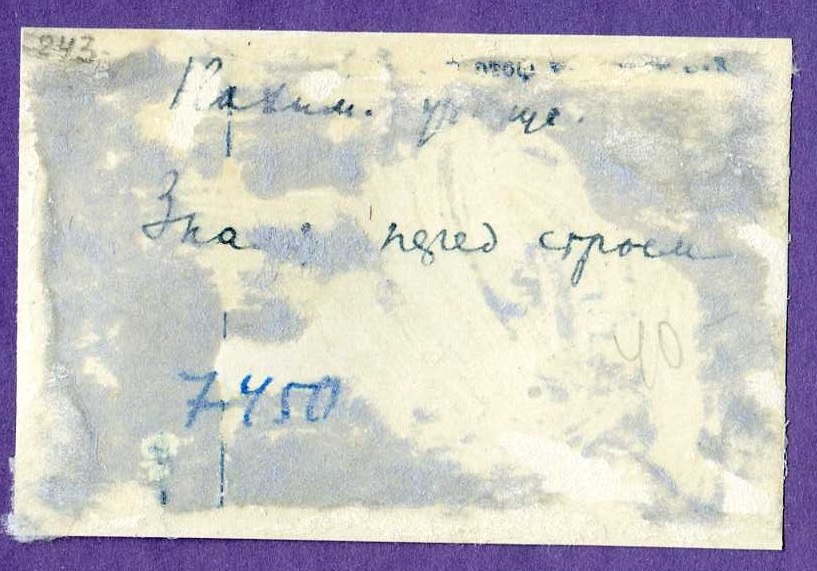 243
Нахим. уч ще.
Зна перед строем
40
7-450